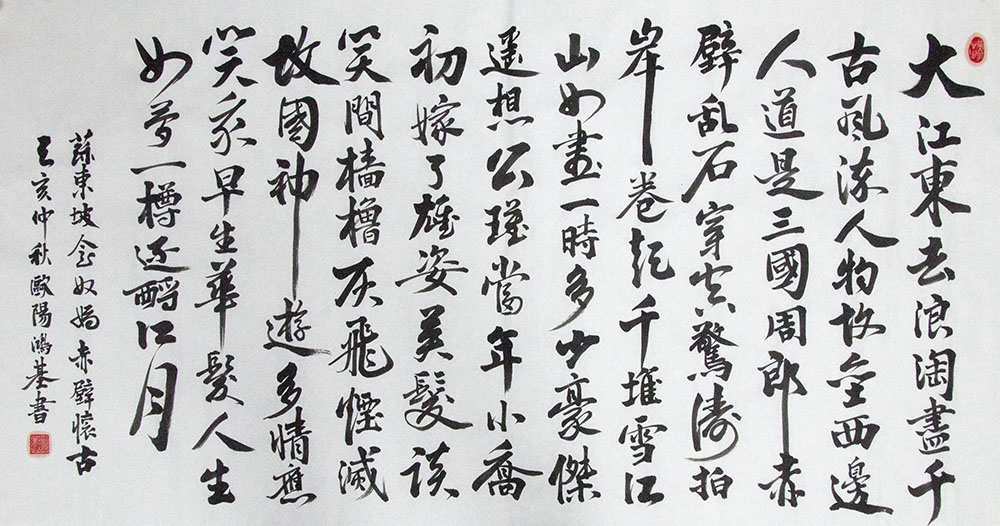 大江東去浪淘盡千
古風流人物故垒西邊
人道是三國周郎赤
壁乱石穿空驚濤拍
岸卷起千堆雪江
山如畫一時多少豪傑
遥想公瑾當年小喬
初嫁了雄姿英髮談
笑間檣櫓灰飛煙滅
故國神遊多情應
笑我早生華髮人生
如夢一樽还酹江月
蘇東坡念奴嬌赤壁懷古
己亥仲秋歐陽鴻基書